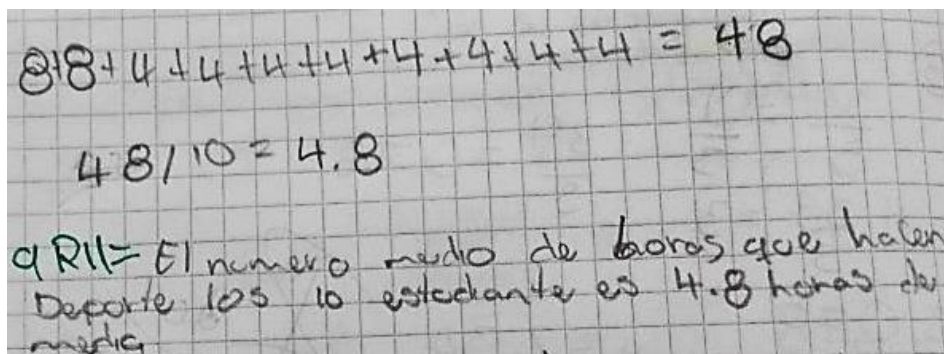 8+8+4+4+4+4+4+4+4+4 = 48
48/10 = 4.8
a R//= El numero medio de horas que hacen
Deporte los 10 estudiante es 4.8 horas de
media